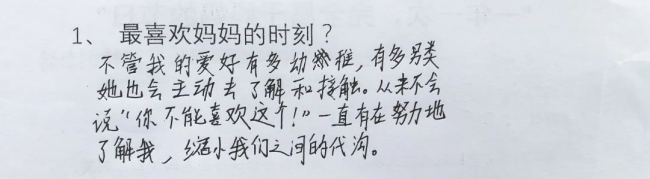 1、 最喜欢妈妈的时刻？
不管我的爱好有多幼稚，有多另类
她也会主动去了解和接触。从来不会
说“你不能喜欢这个！”一直有在努力地
了解我，缩小我们之间的代沟。